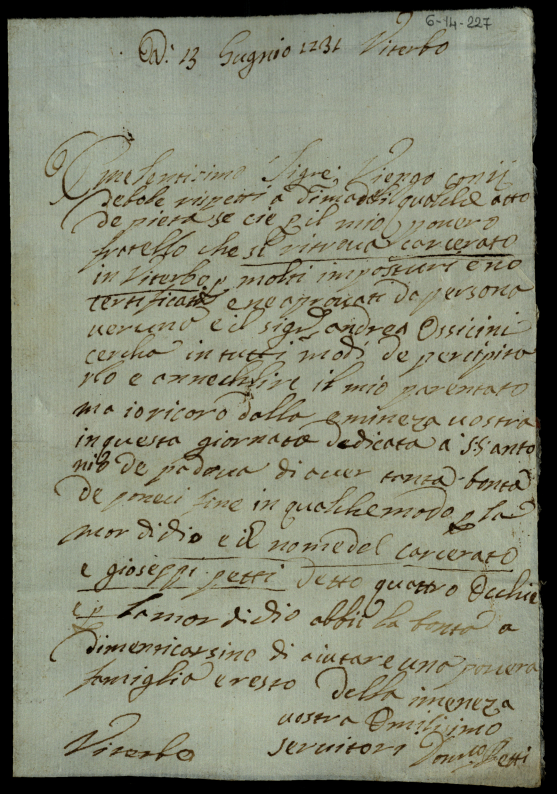 6-14-227
Di 13 Gugnio 1731 Viterbo
Eme Sentisimo Sigre Viengo con ii
debole rispetti a dimadeli qualche atto
de pieta se cie p il mio povero
fratello che si ritrova carcerato
in Viterbo p molti imposturi e no
certificati e ne aprovati da persona
veruna e il sigr andrea Ossicini
cercha in tutti modi de percipita
rlo e annechilire il mio parentato
ma io ricoro dalla emineza vostra
in questa giornata dedicata a S anto
nio de padova di aver tanta bonta
de poneci fine in qualche modo p la
mor di dio e il nome del carcerato
e gioseppi petti detto quattro Ochie
e p lamor di dio abbii la bonta a
dimenticarsine di aiutare una povera
famiglia e resto della imeneza
vostra Omilisimo
Viterbo servitori Domco Petti